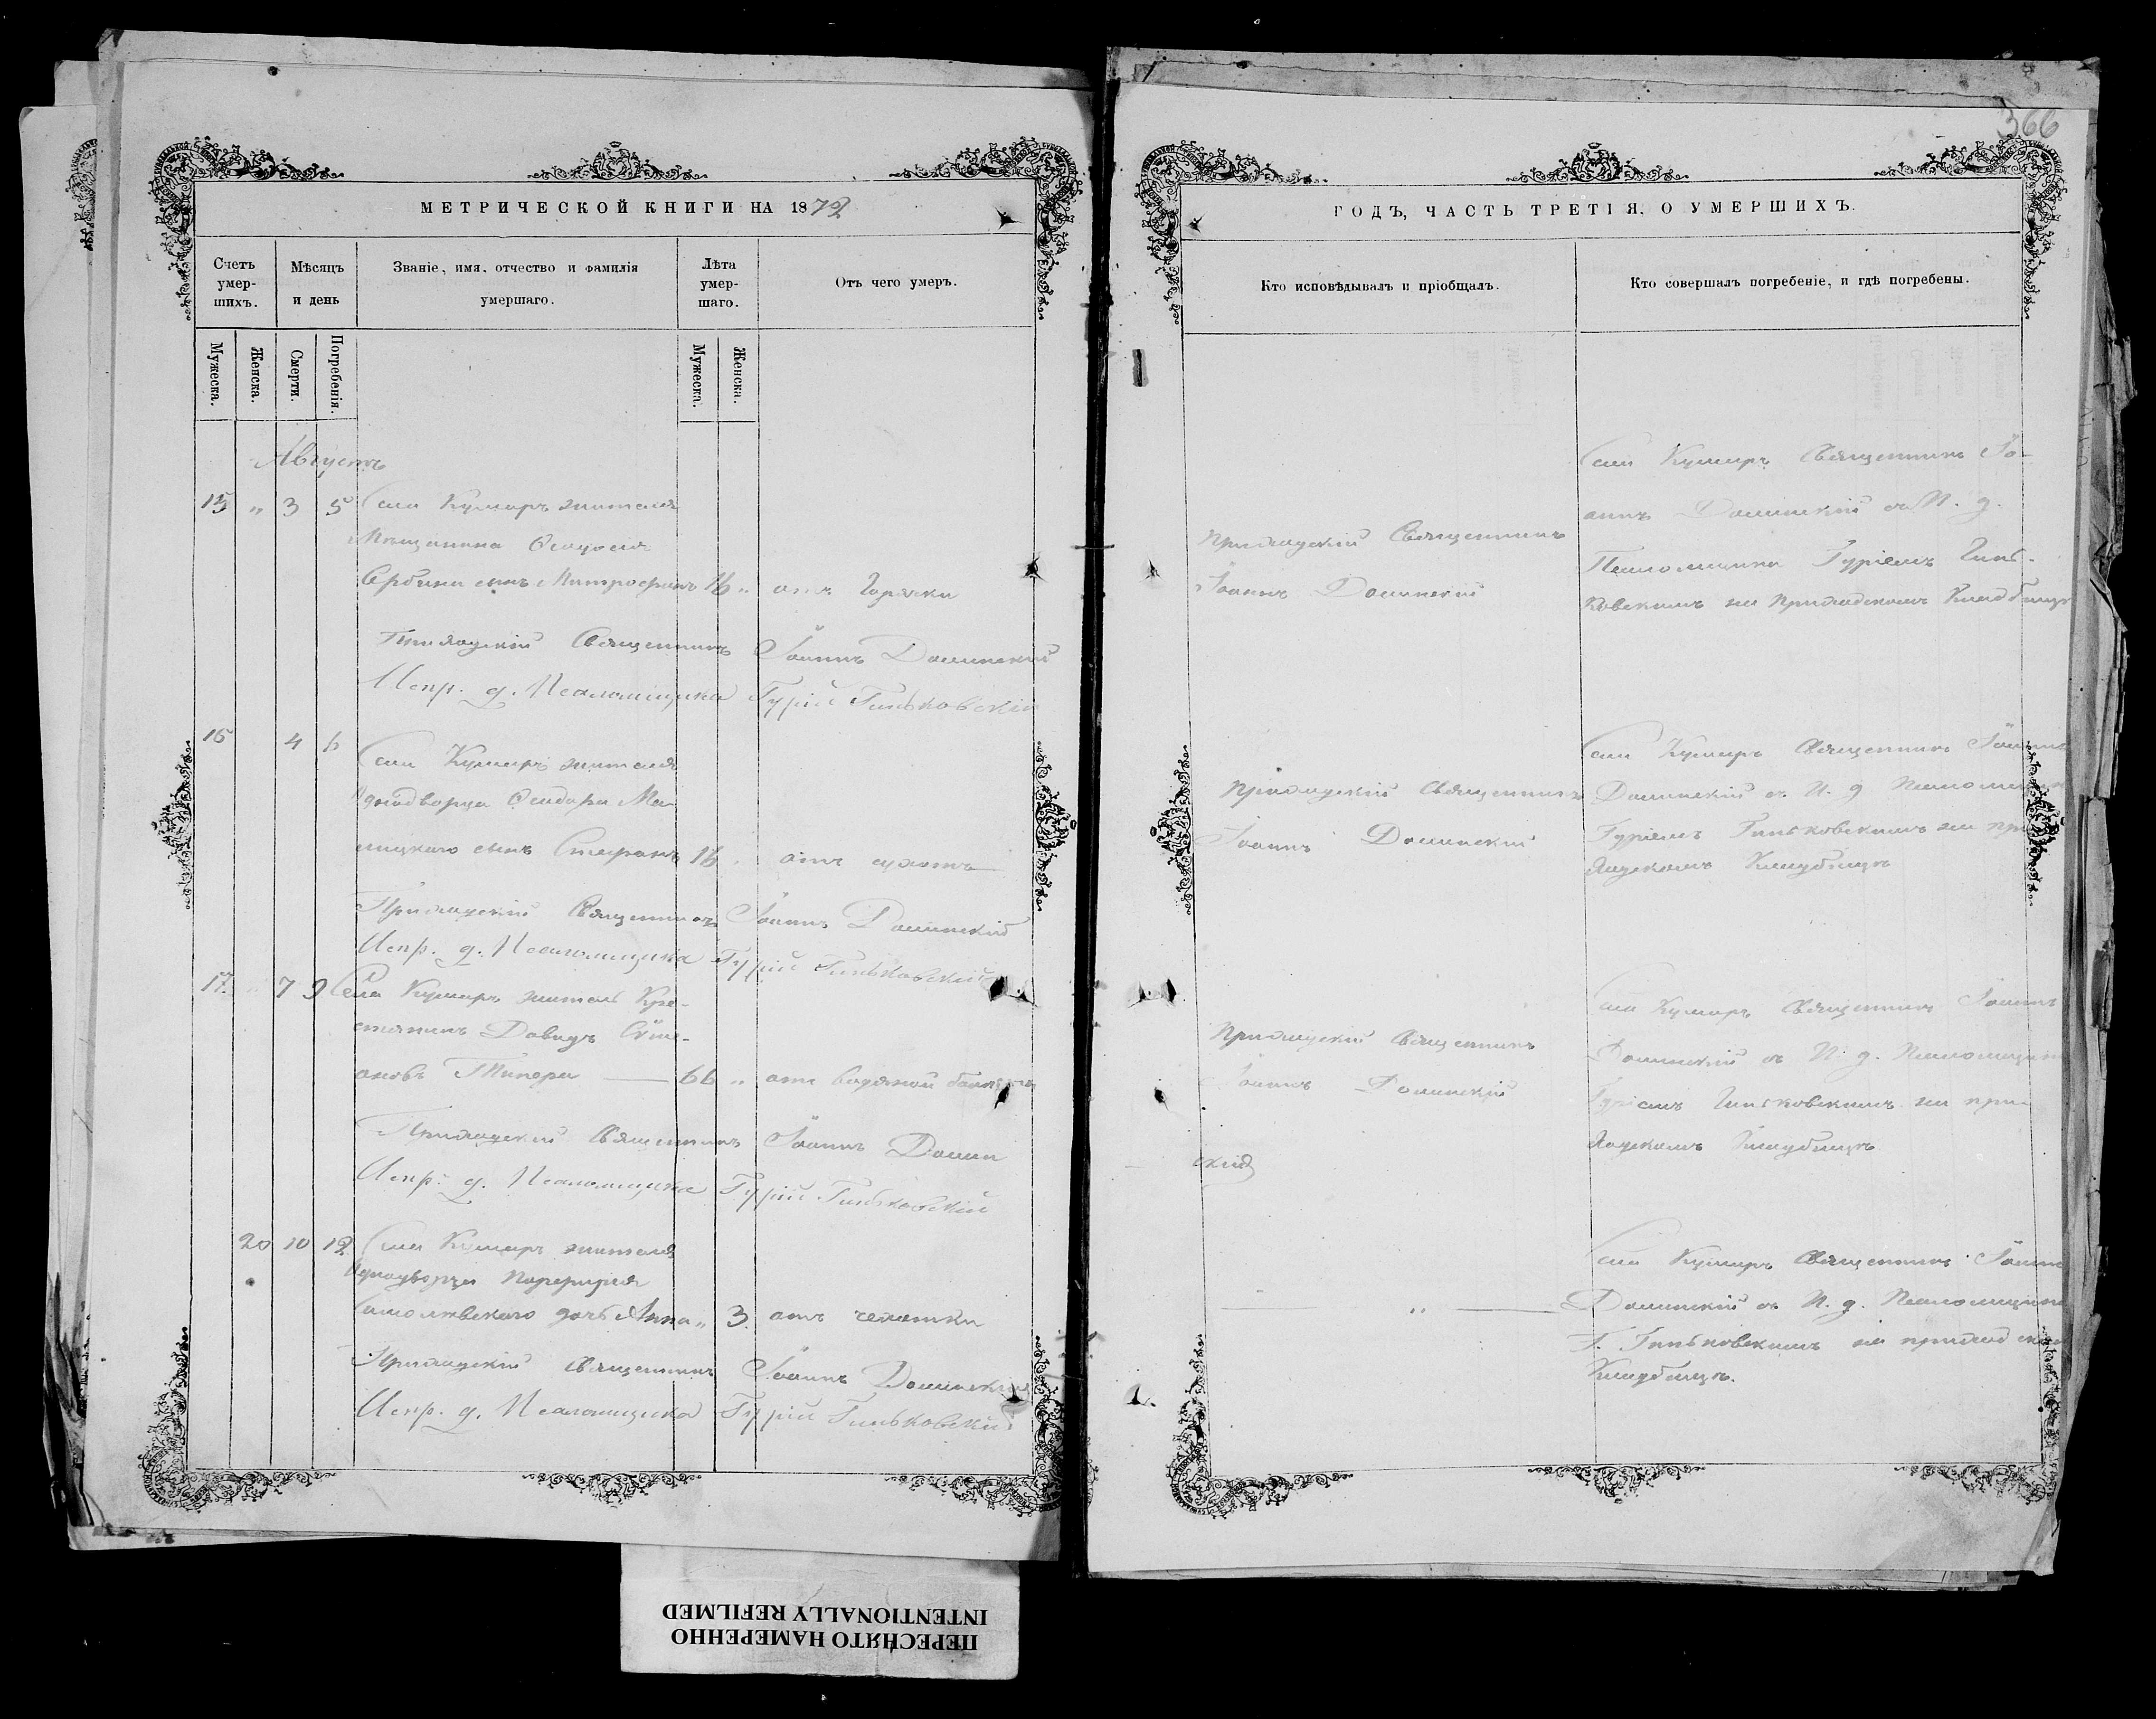 366
МЕТРИЧЕСКОЙ КНИГИ НА 1872
Счетъ умер-шихъ.
Мѣсяцъ и день
Званіе, имя, отчество и фамилія умершаго.
Лѣта умер-шаго.
Отъ чего умеръ.
Мужеска.
Женска.
Смерти.
Погребенія.
Мужеска.
Женска.
Августъ
15 " 3 5 Села Кумаръ жителя
Мѣщанина
сынъ Митрофанъ 16 " отъ Горячки
Приходскій Священникъ Іоаннъ Долинскій
Испр. д. Псаломщика Гурій Гиньковскій
16 4 6
Села Кумаръ жителя
Однодворца
сынъ Стефанъ 16 " отъ
Приходскій Священникъ Іоаннъ Долинскій
Испр. д. Псаломщика Гурій Гиньковскій
17 " 7 9 Села Кумаръ житель Кре-
стьянинъ Давидъ
66 " отъ водяной болѣзни
Приходскій Священникъ Іоаннъ Долин
Испр. д. Псаломщика Гурій Гиньковскій
20 10 12 Села Кумаръ жителя
Однодворца Порфирія
дочь Анна " 3 отъ
Приходскій Священникъ Іоаннъ Долинскій
Испр. д. Псаломщика Гурій Гиньковскій
ГОДЪ, ЧАСТЬ ТРЕТІЯ, О УМЕРШИХЪ.
Кто исповѣдывалъ и пріобщалъ.
Кто совершалъ погребеніе, и гдѣ погребены.
Приходскій Священникъ
Іоаннъ Долинскій
Села Кумаръ Священникъ Іо-
аннъ Долинскій съ И. д.
Псаломщика Гуріемъ Гинь-
ковскимъ на приходскомъ Кладбищѣ
Приходскій Священникъ
Іоаннъ Долинскій
Села Кумаръ Священникъ Іоаннъ
Долинскій съ И. д Псаломщика
Гуріемъ Гиньковскимъ на при
ходскомъ Кладбищѣ
Приходскій Священникъ
Іоаннъ Долинскій
скій
Села Кумаръ Священникъ Іоаннъ
Долинскій съ И. д. Псаломщика
Гуріемъ Гиньковскимъ на при-
ходскомъ Кладбищѣ
" "
Села Кумаръ Священникъ Іоаннъ
Долинскій съ И. д. Псаломщика
Г. Гиньковскимъ на приходском
Кладбищѣ.
ПЕРЕСНЯТО НАМЕРЕННО
INTENTIONALLY REFILMED